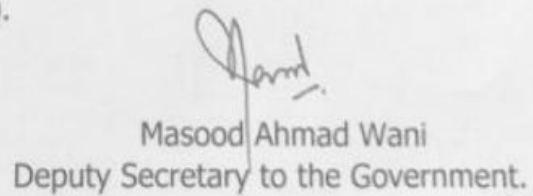 Masood Ahmad Wani
Deputy Secretary to the Government.